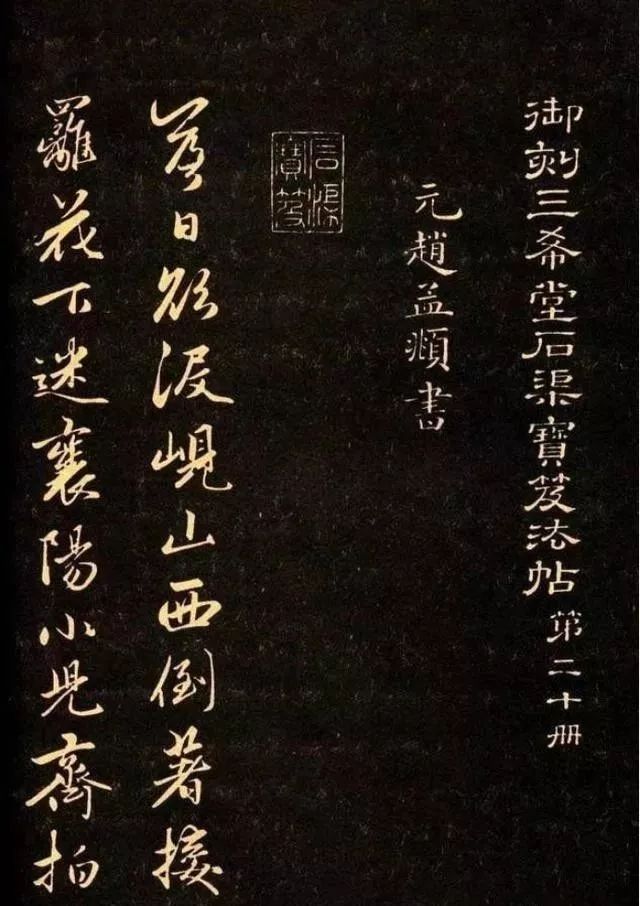 御刻三希堂石渠寶笈法帖 第二十冊
元趙孟頫書
石渠寶笈
落日欲没峴山西倒著接
䍦花下迷襄陽小兒齊拍